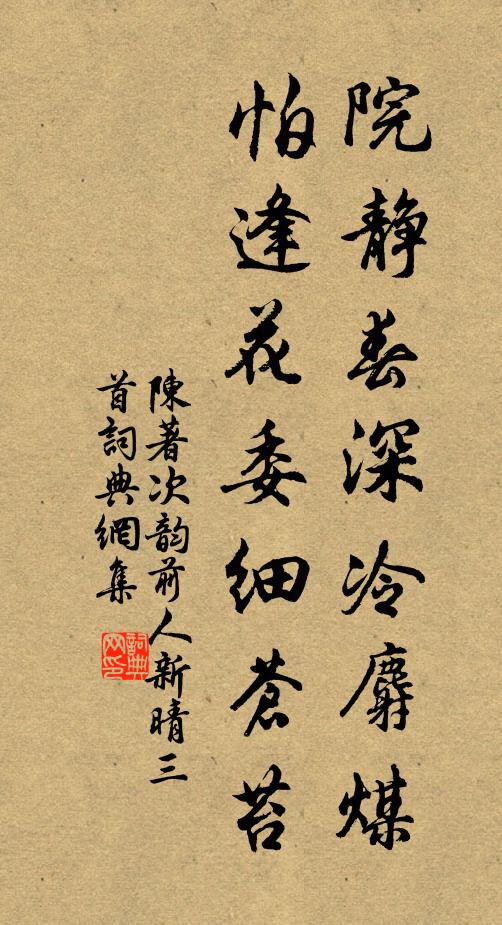 院静春深冷麝煤
怕逢花委细苍苔
陳著次韵前人新晴三
首詞典網集
詞典
网印